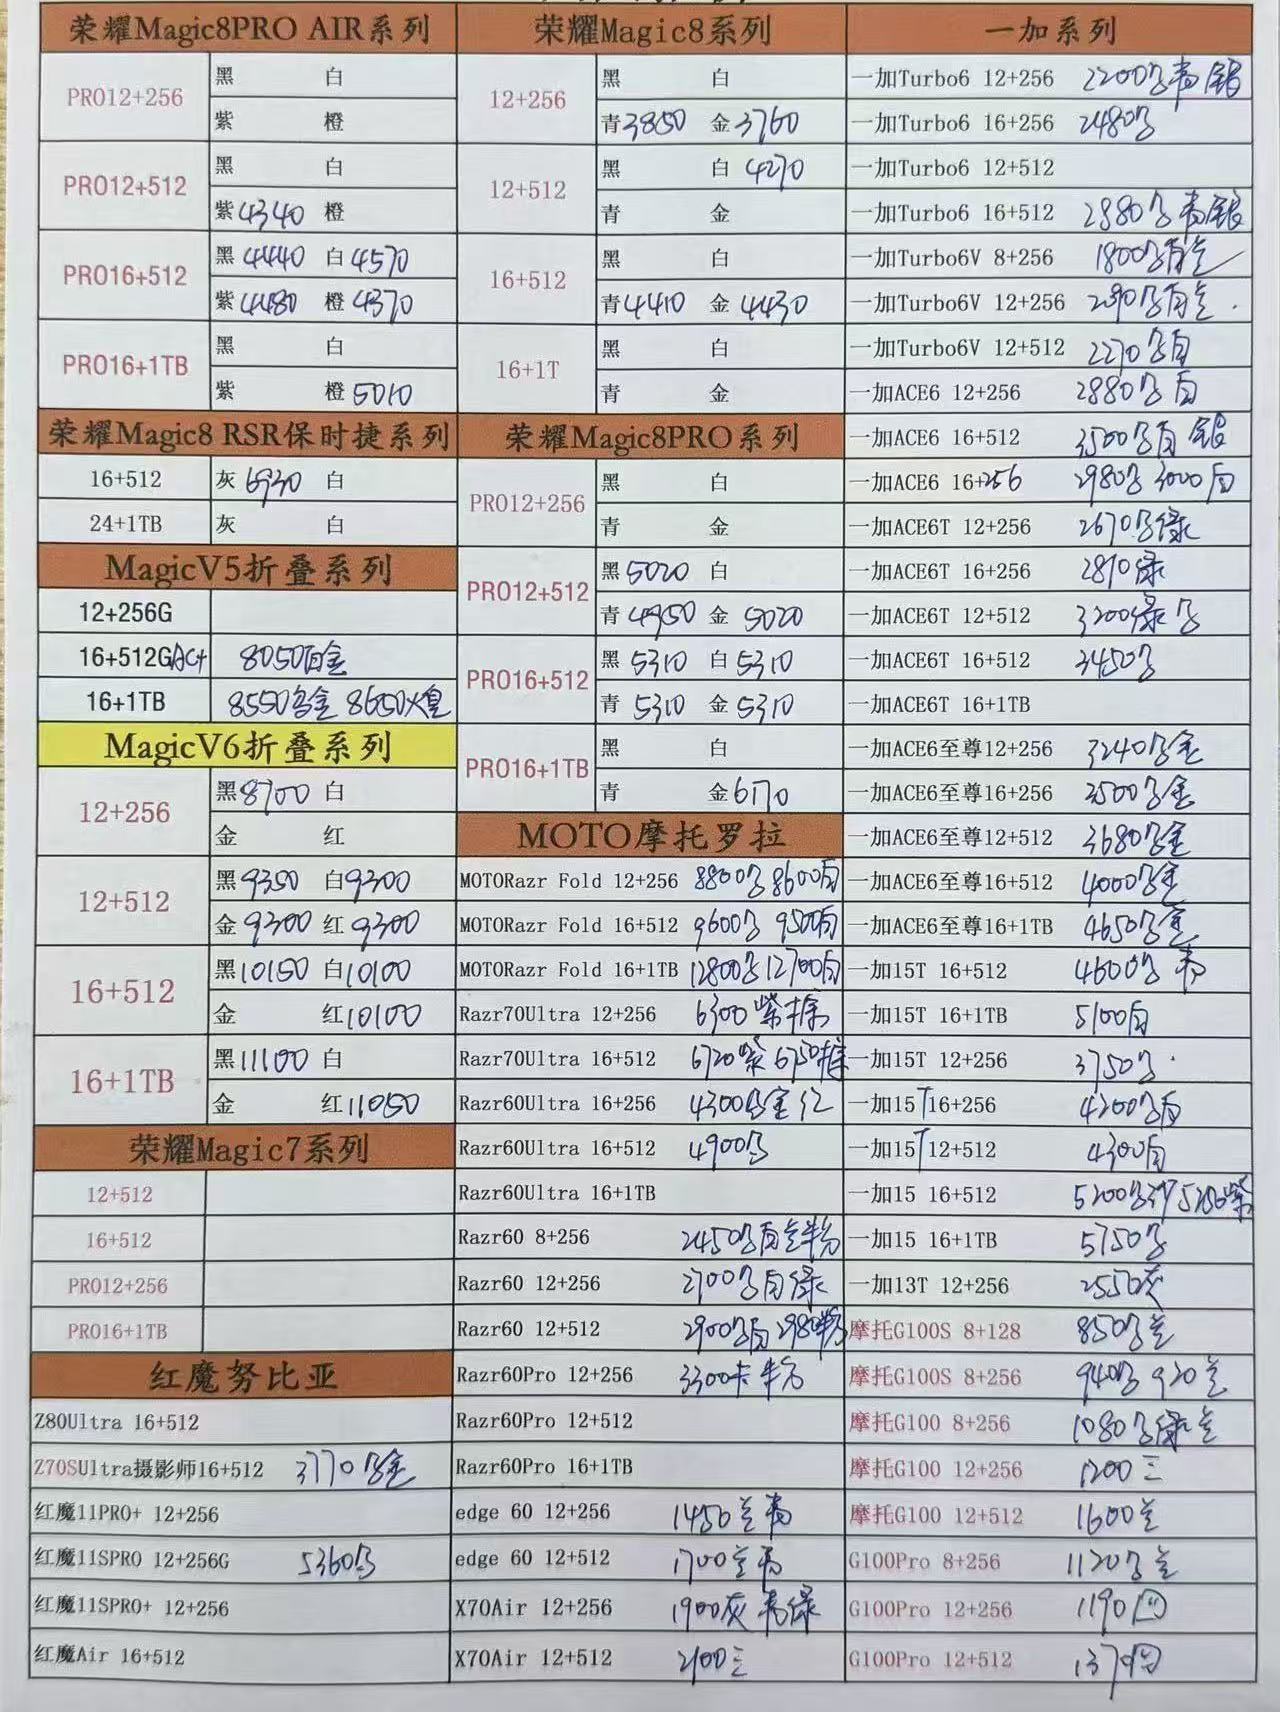 荣耀Magic8PRO AIR系列
PRO12+256
黑 白
紫 橙
PRO12+512
黑 白
紫4340 橙
PRO16+512
黑4440 白4570
紫4480 橙4370
PRO16+1TB
黑 白
紫 橙5010
荣耀Magic8 RSR保时捷系列
16+512 灰6930 白
24+1TB 灰 白
MagicV5折叠系列
12+256G
16+512G 8050白金
16+1TB 8550 8650
MagicV6折叠系列
12+256
黑8700 白
金 红
12+512
黑9350 白9300
金9300 红9300
16+512
黑10150 白10100
金 红10100
16+1TB
黑11100 白
金 红11050
荣耀Magic7系列
12+512
16+512
PRO12+256
PRO16+1TB
红魔努比亚
Z80Ultra 16+512
Z70SUltra摄影师16+512 3770
红魔11PRO+ 12+256
红魔11SPRO 12+256G 5360
红魔11SPRO+ 12+256
红魔Air 16+512
荣耀Magic8系列
12+256
黑 白
青3850 金3760
12+512
黑 白4270
青 金
16+512
黑 白
青4410 金4430
16+1T
黑 白
青 金
荣耀Magic8PRO系列
PRO12+256
黑 白
青 金
PRO12+512
黑5020 白
青4950 金5020
PRO16+512
黑5310 白5310
青5310 金5310
PRO16+1TB
黑 白
青 金6170
MOTO摩托罗拉
MOTORazr Fold 12+256 8800 8600白
MOTORazr Fold 16+512 9600 9500白
MOTORazr Fold 16+1TB 12800 12700白
Razr70Ultra 12+256 6300紫
Razr70Ultra 16+512 6720紫 6750
Razr60Ultra 16+256 4300
Razr60Ultra 16+512 4900
Razr60Ultra 16+1TB
Razr60 8+256 2450
Razr60 12+256 2700
Razr60 12+512 2900 2980
Razr60Pro 12+256 3300卡粉
Razr60Pro 12+512
Razr60Pro 16+1TB
edge 60 12+256 1450
edge 60 12+512 1700
X70Air 12+256 1900灰
X70Air 12+512 2100三
一加系列
一加Turbo6 12+256 2200
一加Turbo6 16+256 2480
一加Turbo6 12+512
一加Turbo6 16+512 2880
一加Turbo6V 8+256 1800
一加Turbo6V 12+256
一加Turbo6V 12+512 2270
一加ACE6 12+256 2880
一加ACE6 16+512 3500
一加ACE6 16+256 2980 3000白
一加ACE6T 12+256 2670
一加ACE6T 16+256 2810绿
一加ACE6T 12+512 3200绿
一加ACE6T 16+512 3450
一加ACE6T 16+1TB
一加ACE6至尊12+256 3240
一加ACE6至尊16+256 3500
一加ACE6至尊12+512 3680
一加ACE6至尊16+512 4000
一加ACE6至尊16+1TB 4650
一加15T 16+512 4600
一加15T 16+1TB 5100白
一加15T 12+256 3750
一加15T 16+256 4200
一加15T 12+512 4300白
一加15 16+512 5200
一加15 16+1TB 5750
一加13T 12+256 2550灰
摩托G100S 8+128 850
摩托G100S 8+256 940 920
摩托G100 8+256 1080
摩托G100 12+256 1200三
摩托G100 12+512 1600
G100Pro 8+256 1120
G100Pro 12+256 1190
G100Pro 12+512 1370